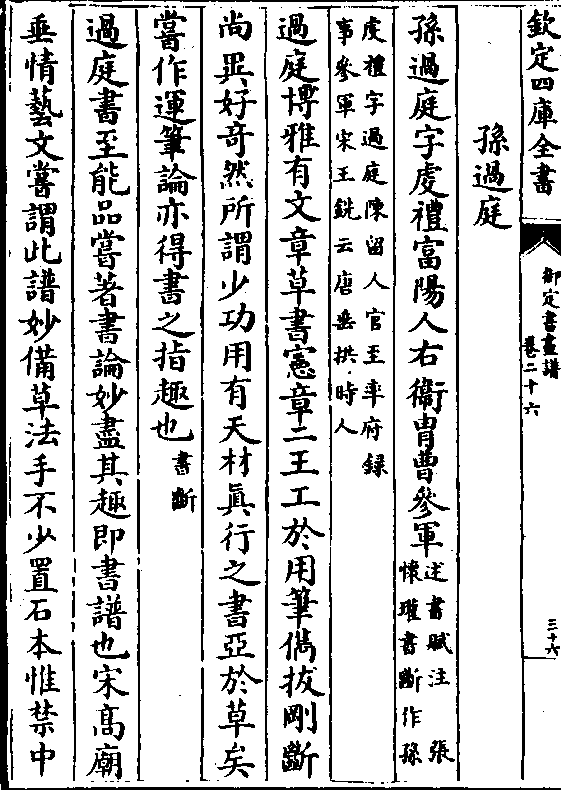 欽定四庫全書
御定書畫譜
卷二十六
三十六
孫過庭
孫過庭字虔禮富陽人右衞胄曹參軍述書賦注 張
懷瓘書斷作孫
虔禮字過庭陳留人官至率府録
事參軍宋王銑云唐垂拱時人
過庭博雅有文章草書憲章二王工於用筆儁拔剛斷
尚異好奇然所謂少功用有天材真行之書亞於草矣
嘗作運筆論亦得書之指趣也書斷
過庭書至能品嘗著書論妙盡其趣即書譜也宋髙廟
垂情藝文嘗謂此譜妙備草法手不少置石本惟禁中